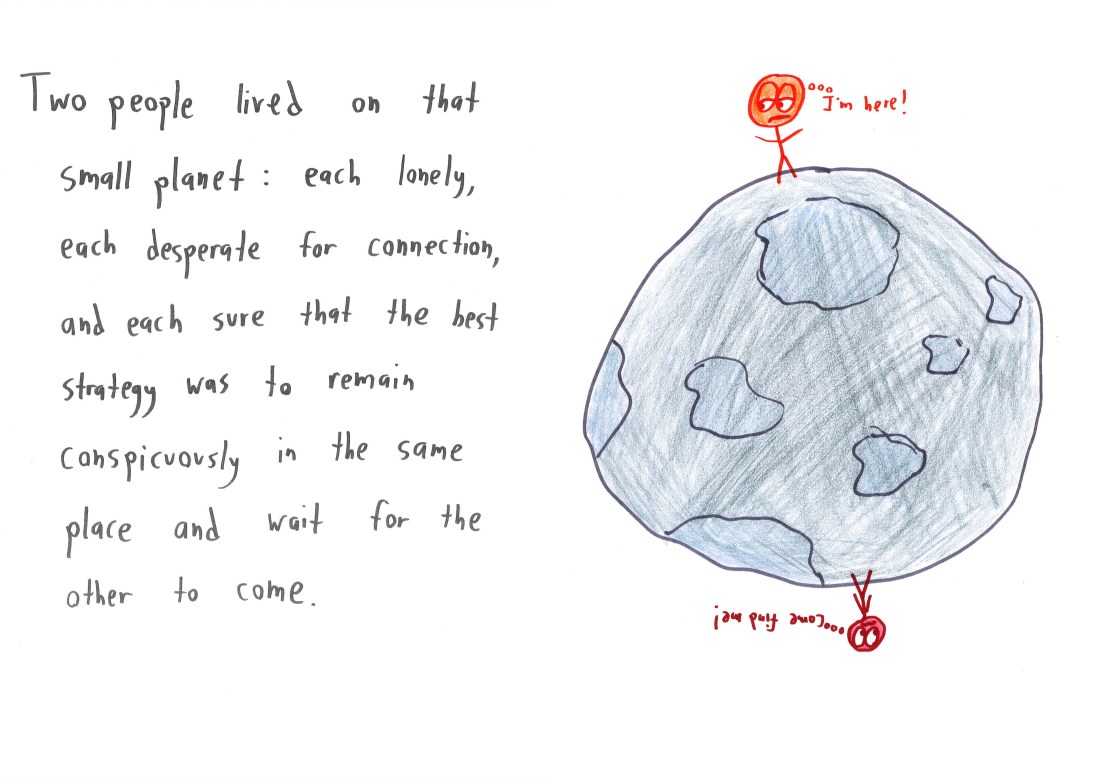 Two people lived on that
small planet: each lonely,
each desperate for connection,
and each sure that the best
strategy was to remain
conspicuously in the same
place and wait for the
other to come.
I'm here!
Come find me!